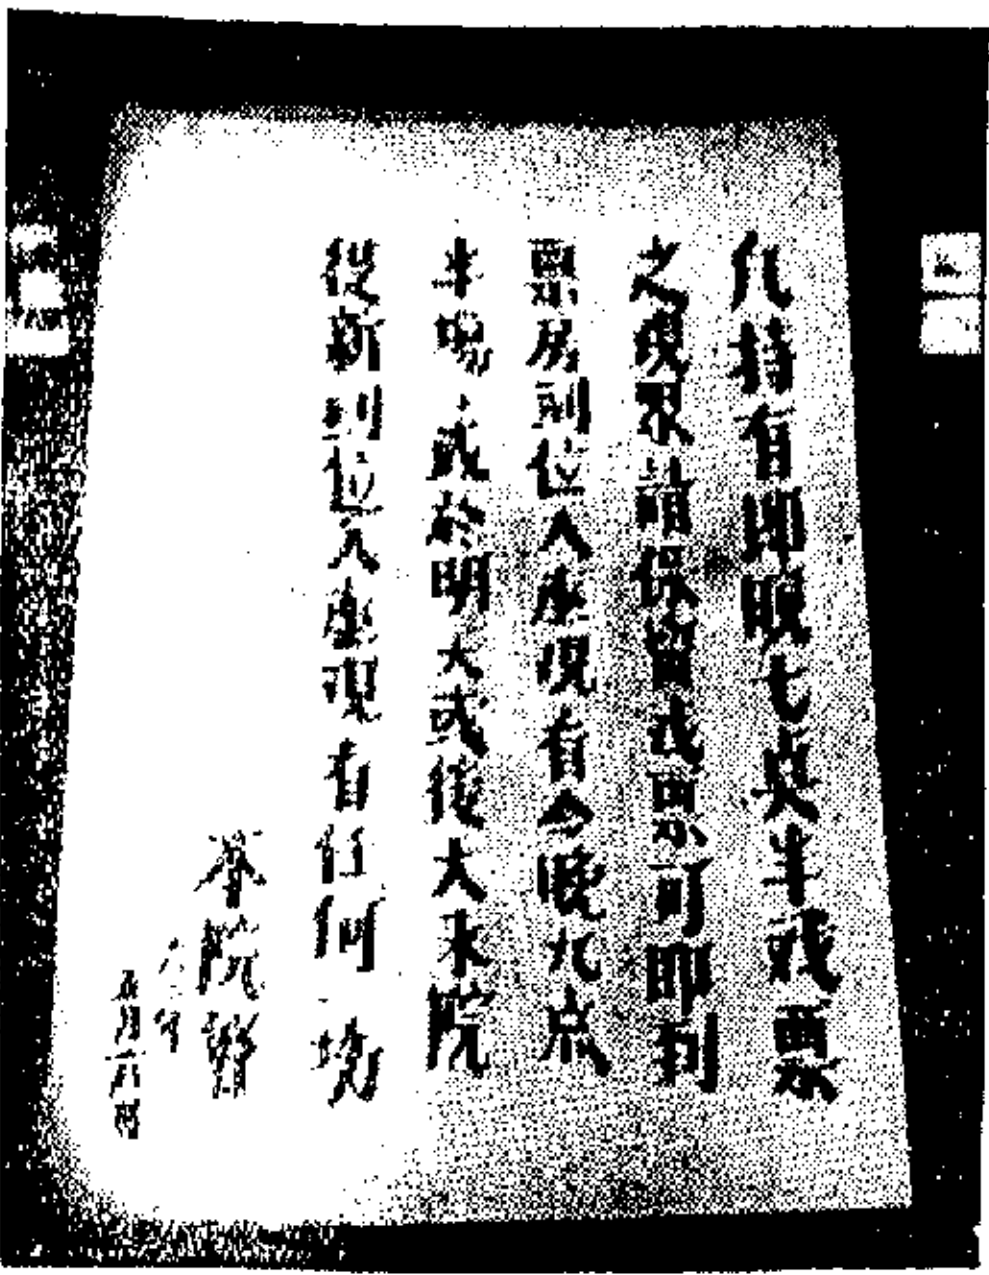 凡持有即晚七奌半戏票
之观眾請保留戏票可即到
票房划位入座观看今晚九点
半場或於明天或後天来院
從新划位入座观看任何場
本院啓
年
五月六日